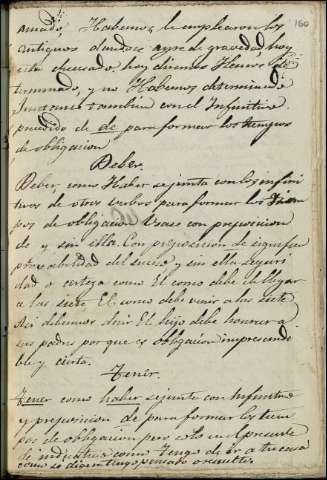 160
amado, Habemos, le emplearon los
antiguos dandose ayre de gravedad, hoy
esta desusado. hoy diremos Hemos de-
terminado, y no Habemos determinado
Juntase tambien con el Infinitivo
precedido de de para formar los tiempos
de obligacion
Deber.
Deber, como Haber se junta con los infiniti
vos de otros verbos para formar los tiem
pos de obligacion Usase con preposicion
de y sin ella. Con preposicion de significa
probabilidad del suceso y sin ella seguri
dad o certeza como El coche debe de llegar
a las siete El coche debe venir a las siete
Asi debemos decir El hijo debe honrar a
sus padres por que es obligacion imprescindi
ble y cierta.
Tener.
Tener como haber se junta con Infinitivo
y preposicion de para formar los tiem
pos de obligacion pero solo en el presente
de indicativo como tengo de ir a tu casa
como se dicen tengo pensado